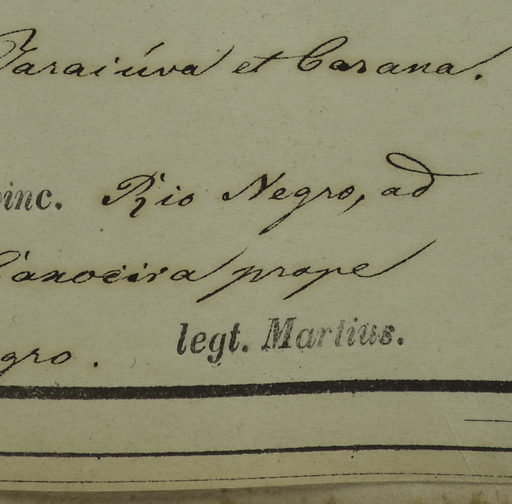 Jaraiúva et Carana.
inc. Rio Negro, ad
Canoeira prope
gro.
legt. Martius.